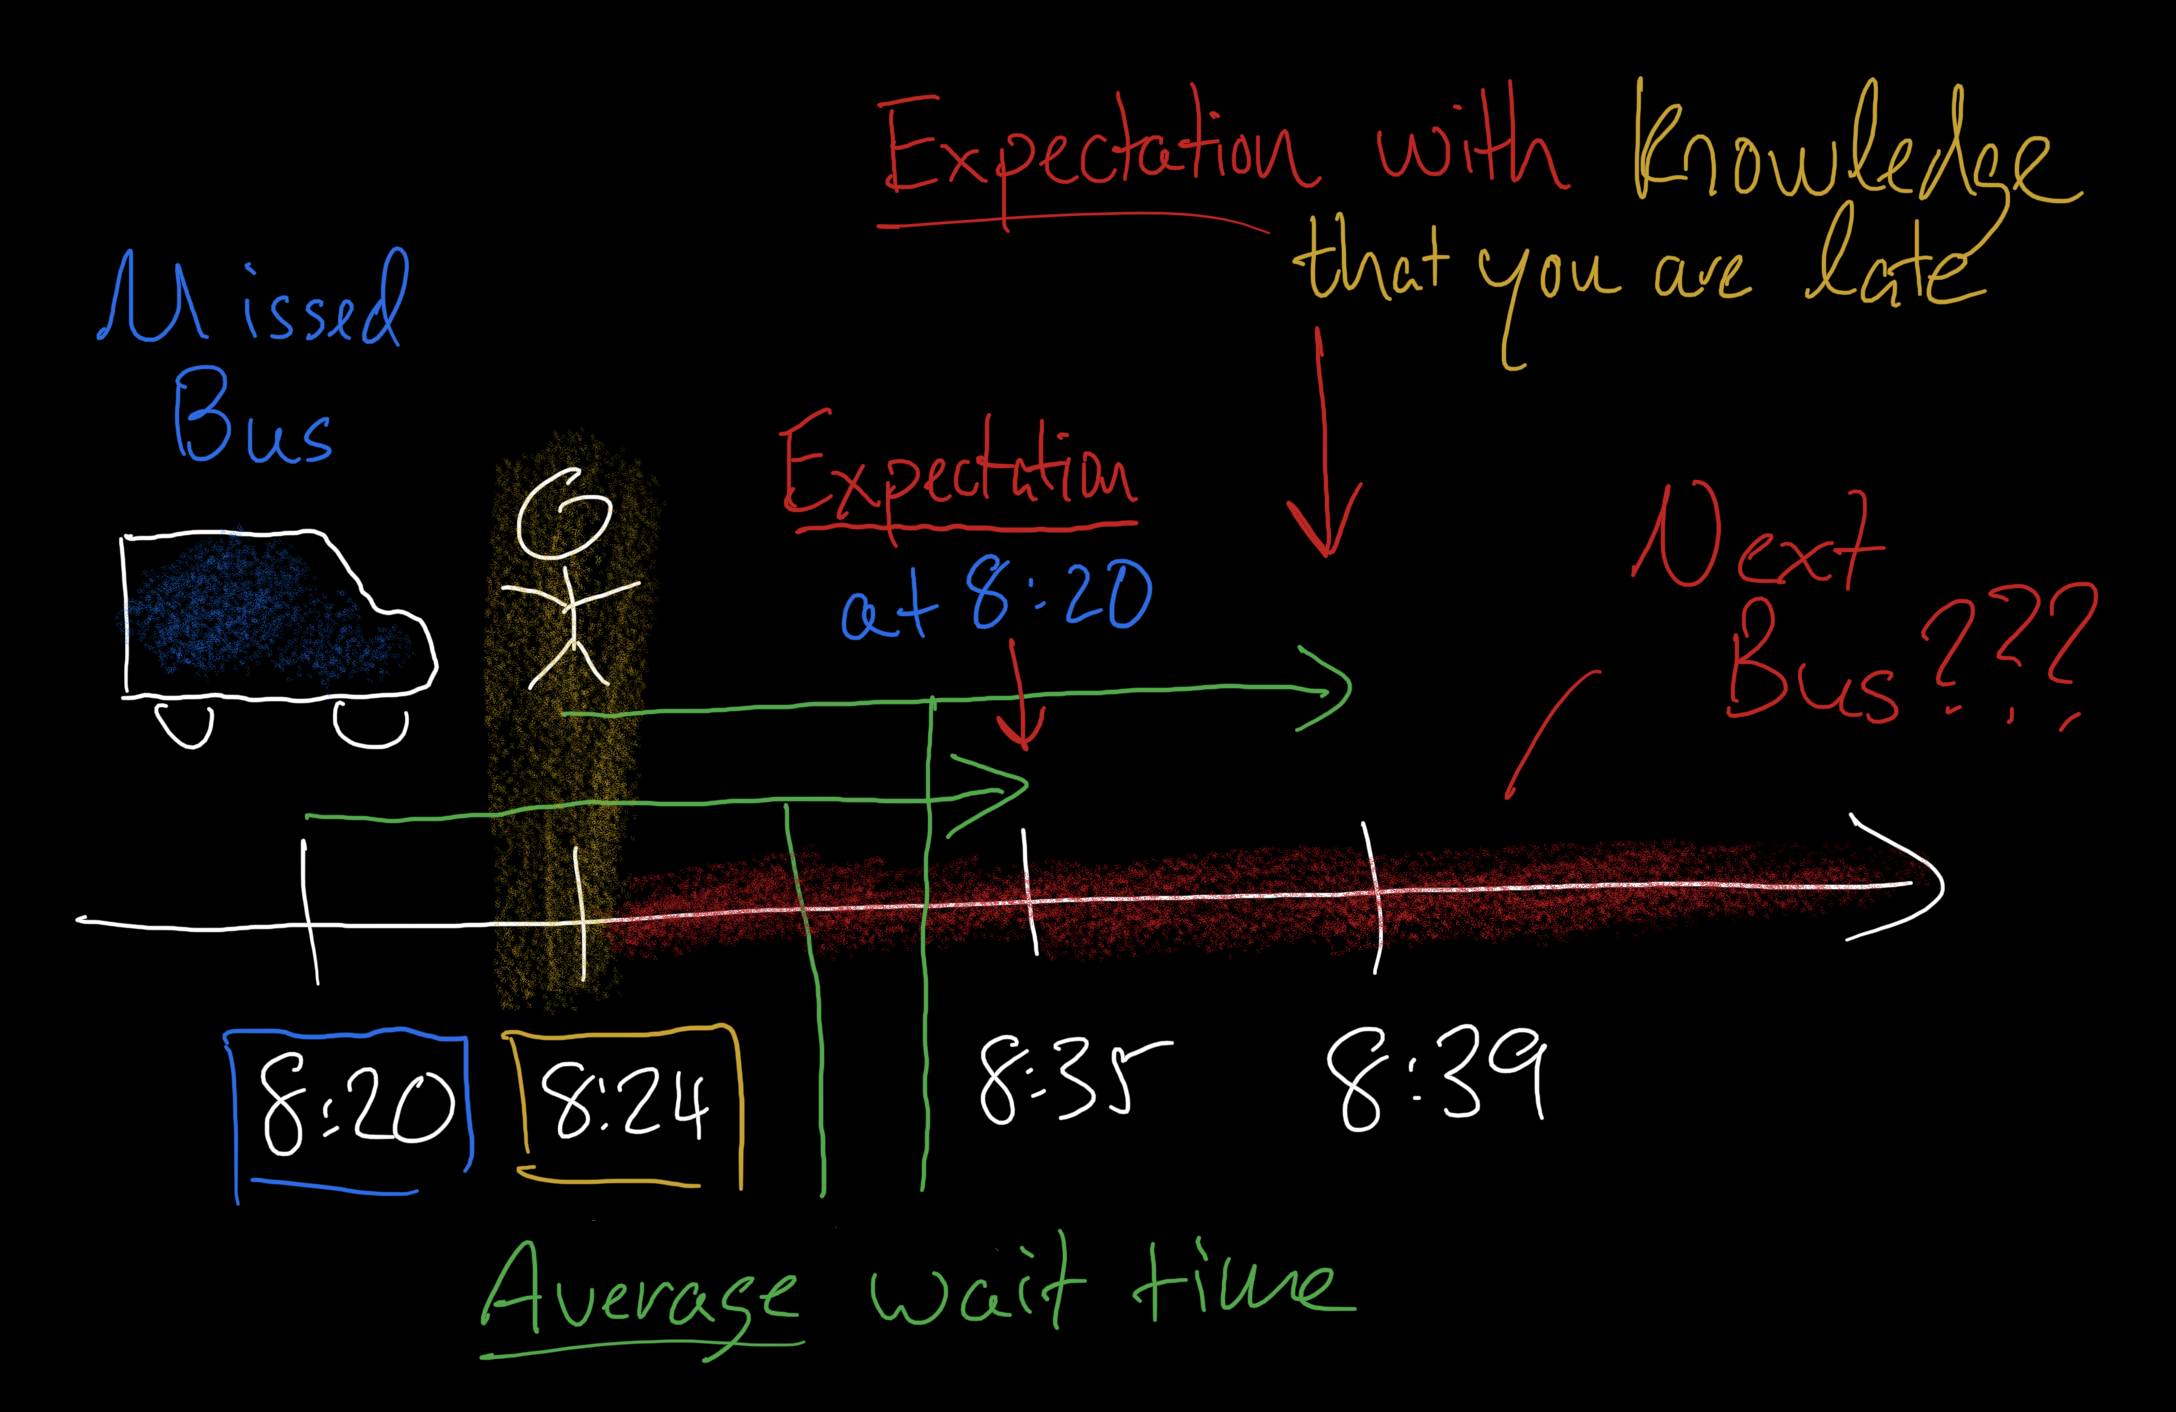 Expectation with Knowledge
that you are late
Missed
Bus
Expectation
at 8:20
Next
Bus???
8:20
8:24
8:35
8:39
Average wait time